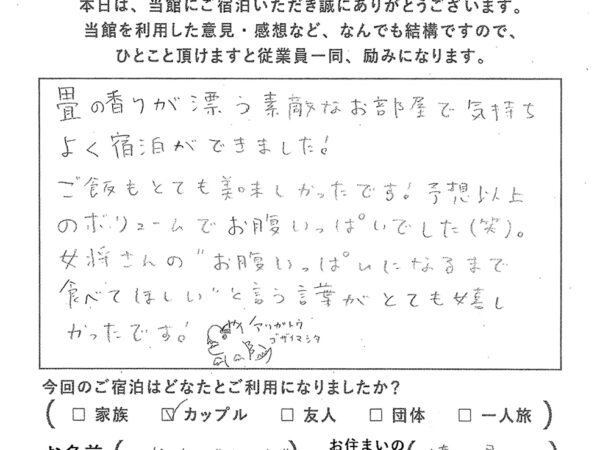 本日は、当館にご宿泊いただき誠にありがとうございます。
当館を利用した意見・感想など、なんでも結構ですので、
ひとこと頂けますと従業員一同、励みになります。
畳の香りが漂う素敵なお部屋で気持ち
よく宿泊ができました!
ご飯もとても美味しかったです!予想以上
のボリュームでお腹いっぱいでした(笑)。
女将さんの"お腹いっぱいになるまで
食べてほしい"と言う言葉がとても嬉し
かったです!
アリガトウ
ゴザイマシタ
今回のご宿泊はどなたとご利用になりましたか?
( □ 家族 ☑ カップル □ 友人 □ 団体 □ 一人旅 )
お名前 ( お住まいの (